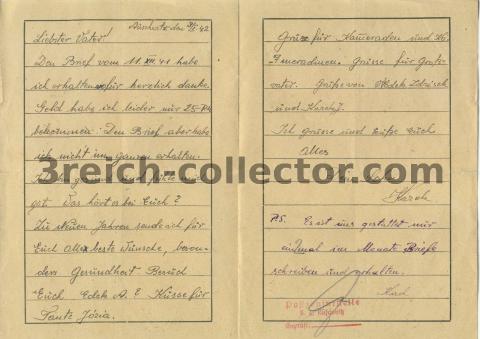 Auschwitz den
42
Liebster Vater!
Den Brief vom 11 XII 41 habe
ich erhalten wofür herzlich danke.
Geld habe ich leider nur 25-RM
bekommen. Den Brief aber habe
ich nicht im Ganzen erhalten.
3reich-collector.com
gut. Was hört es bei Euch?
Zu Neuen Jahren sende ich für
Euch Alle beste Wünsche, beson-
ders Gesundheit Besuch
Euch Edek A.? Küsse für
Tante Józia.
Grüsse für Kameraden und
Grüsse für Groß-
vater. Grüße von Zdzisek
und
Ich grüsse und küsse Euch
Alles
P.S. Es ist uns gestattet nur
einmal im Monate Briefe
schreiben und erhalten.
Postzensurstelle
K. L. Auschwitz
Geprüft: